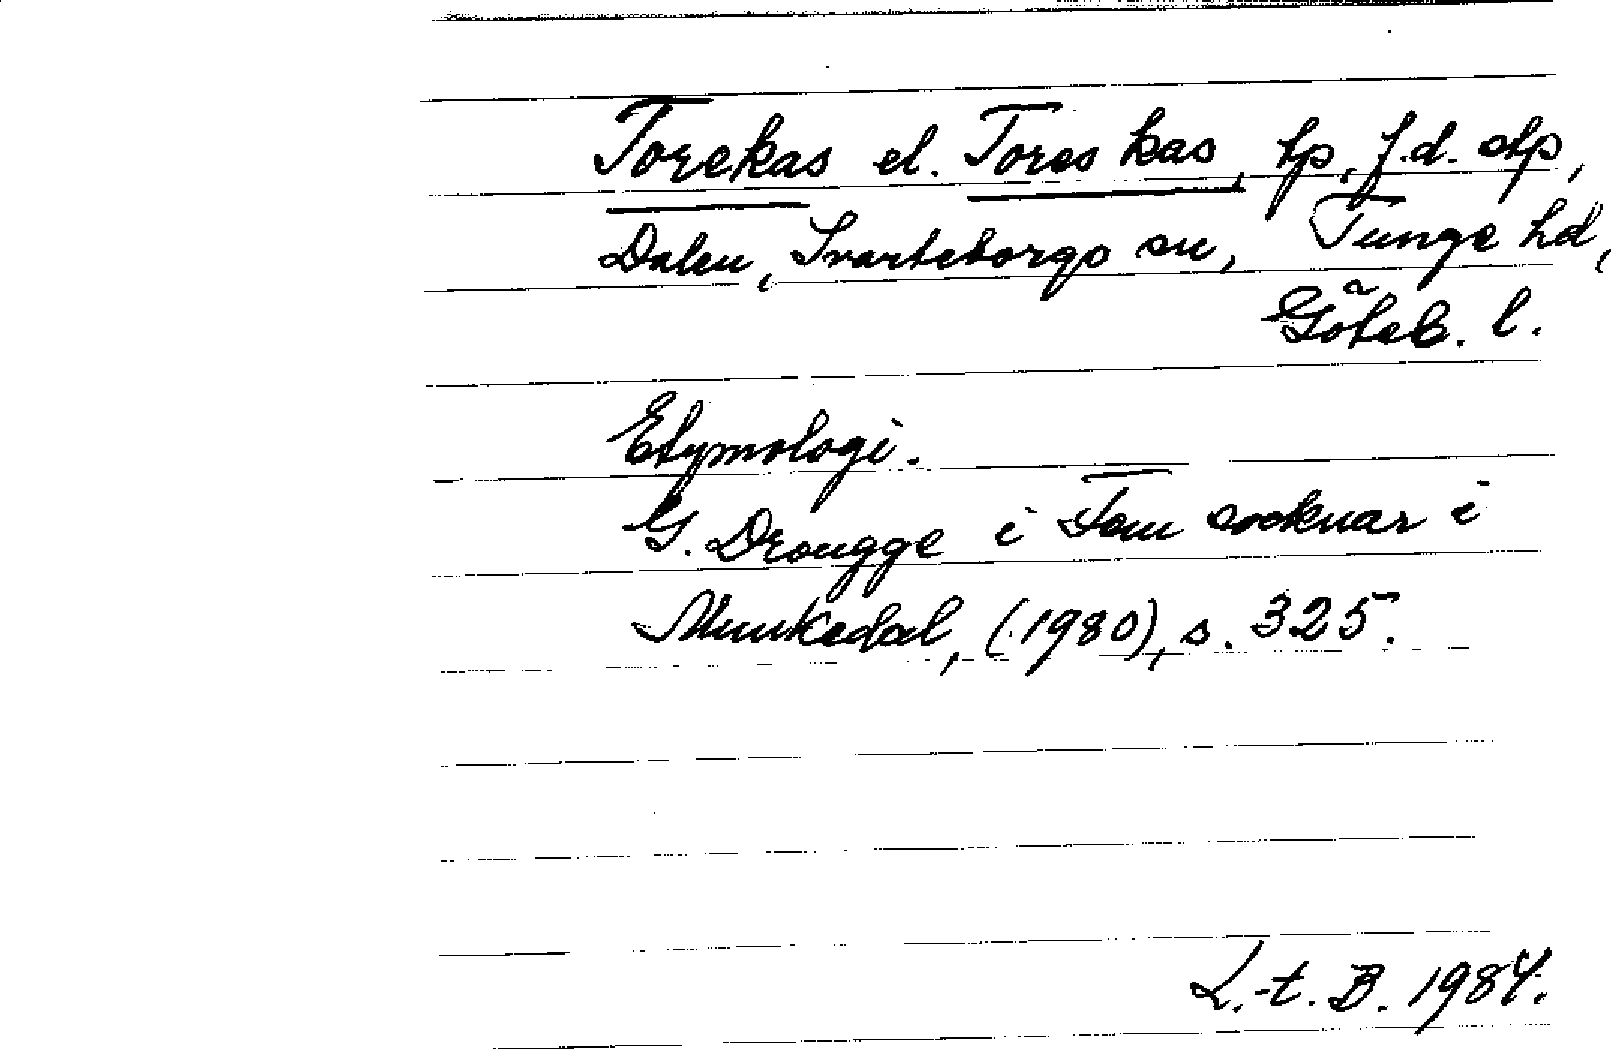 Torekas el. Tores kas, tp, f.d. stp,
Dalen, Svarteborgs sn, Tunge hd,
Göteb. l.
Etymologi.
G. Drougge i Fem socknar i
Munkedal, (1980), s. 325.
L.-t. B. 1984.